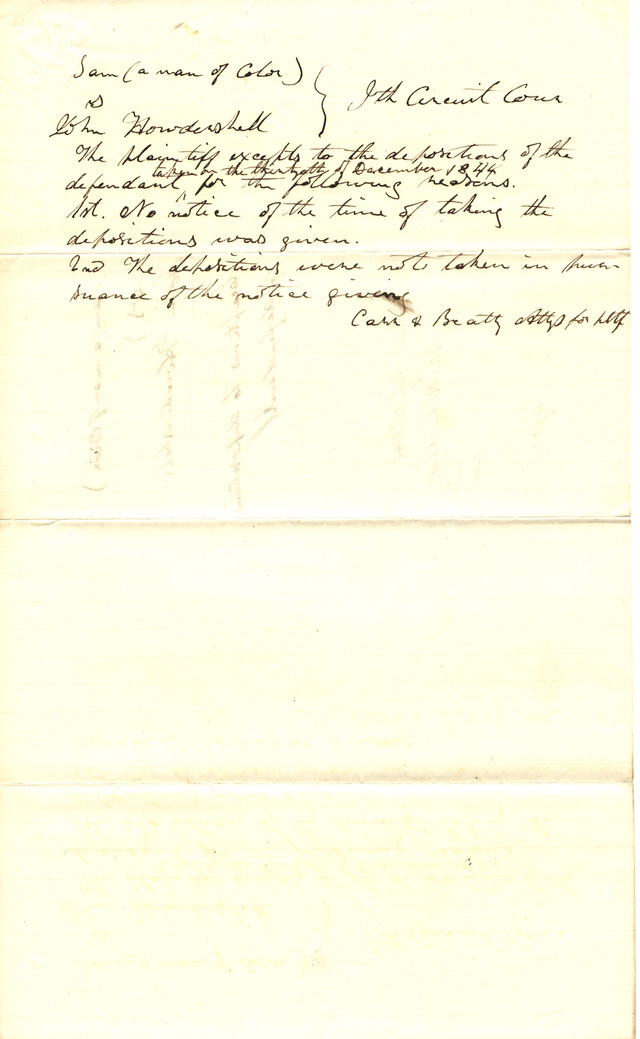 Sam (a man of Color)
vs
John Howdershell
} In th Circuit Cour
The plaintiff excepts to the depositions of the
taken on the thirtieth of December 1844
defendant ^ for the following reasons.
1st. No notice of the time of taking the
depositions was given.
2nd The depositions were not taken in pur-
suance of the notice given
Carr & Beatty Attys for pltff